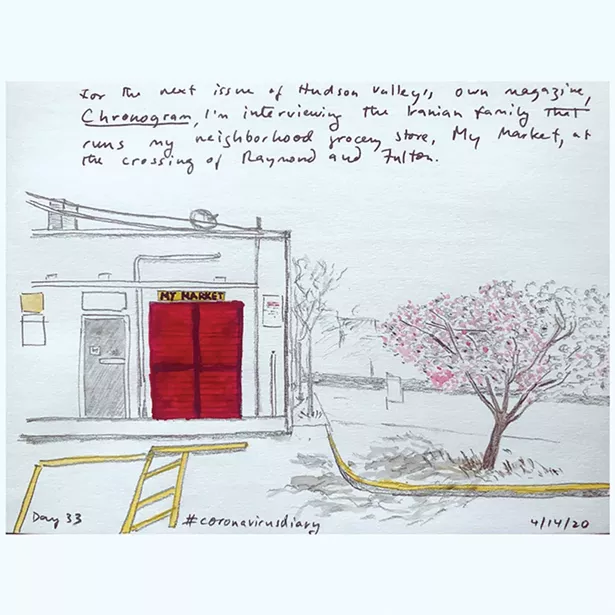 For the next issue of Hudson Valley's own magazine,
Chronogram, I'm interviewing the Iranian family that
runs my neighborhood grocery store, My Market, at
the crossing of Raymond and Fulton.
MY MARKET
Day 33
#coronavirusdiary
4/14/20